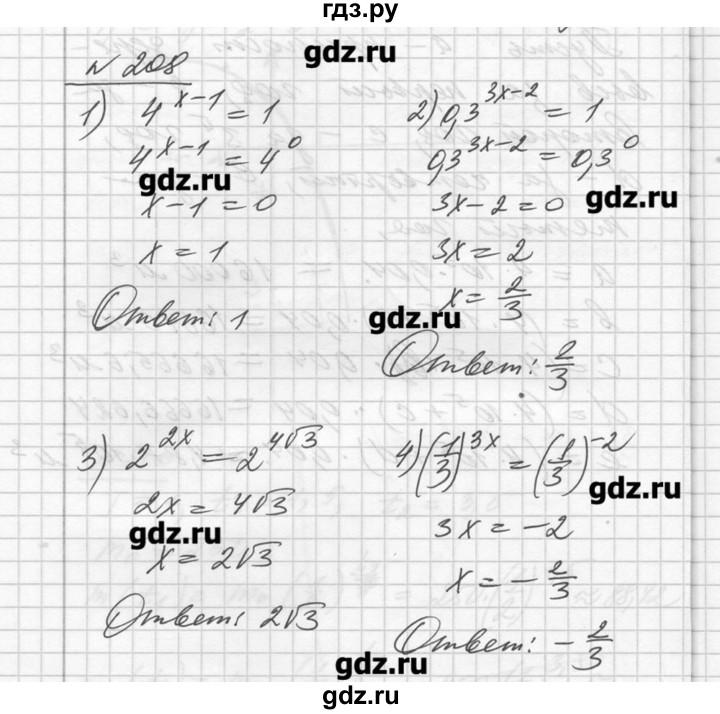 гдз.ру
gdz.ru
№ 208
1) 4^(x-1) = 1
4^(x-1) = 4^0
gdz.ru
x-1=0
x=1
Ответ: 1
2) 0,3^(3x-2) = 1
0,3^(3x-2) = 0,3^0
gdz.ru
3x-2=0
3x=2
x= 2/3
gdz.ru
Ответ: 2/3
3) 2^(2x) = 2^(4√3)
2x=4√3
gdz.ru
x=2√3
Ответ: 2√3
4) (1/3)^(3x) = (1/3)^(-2)
gdz.ru
3x=-2
x=-2/3
Ответ: -2/3
gdz.ru
gdz.ru